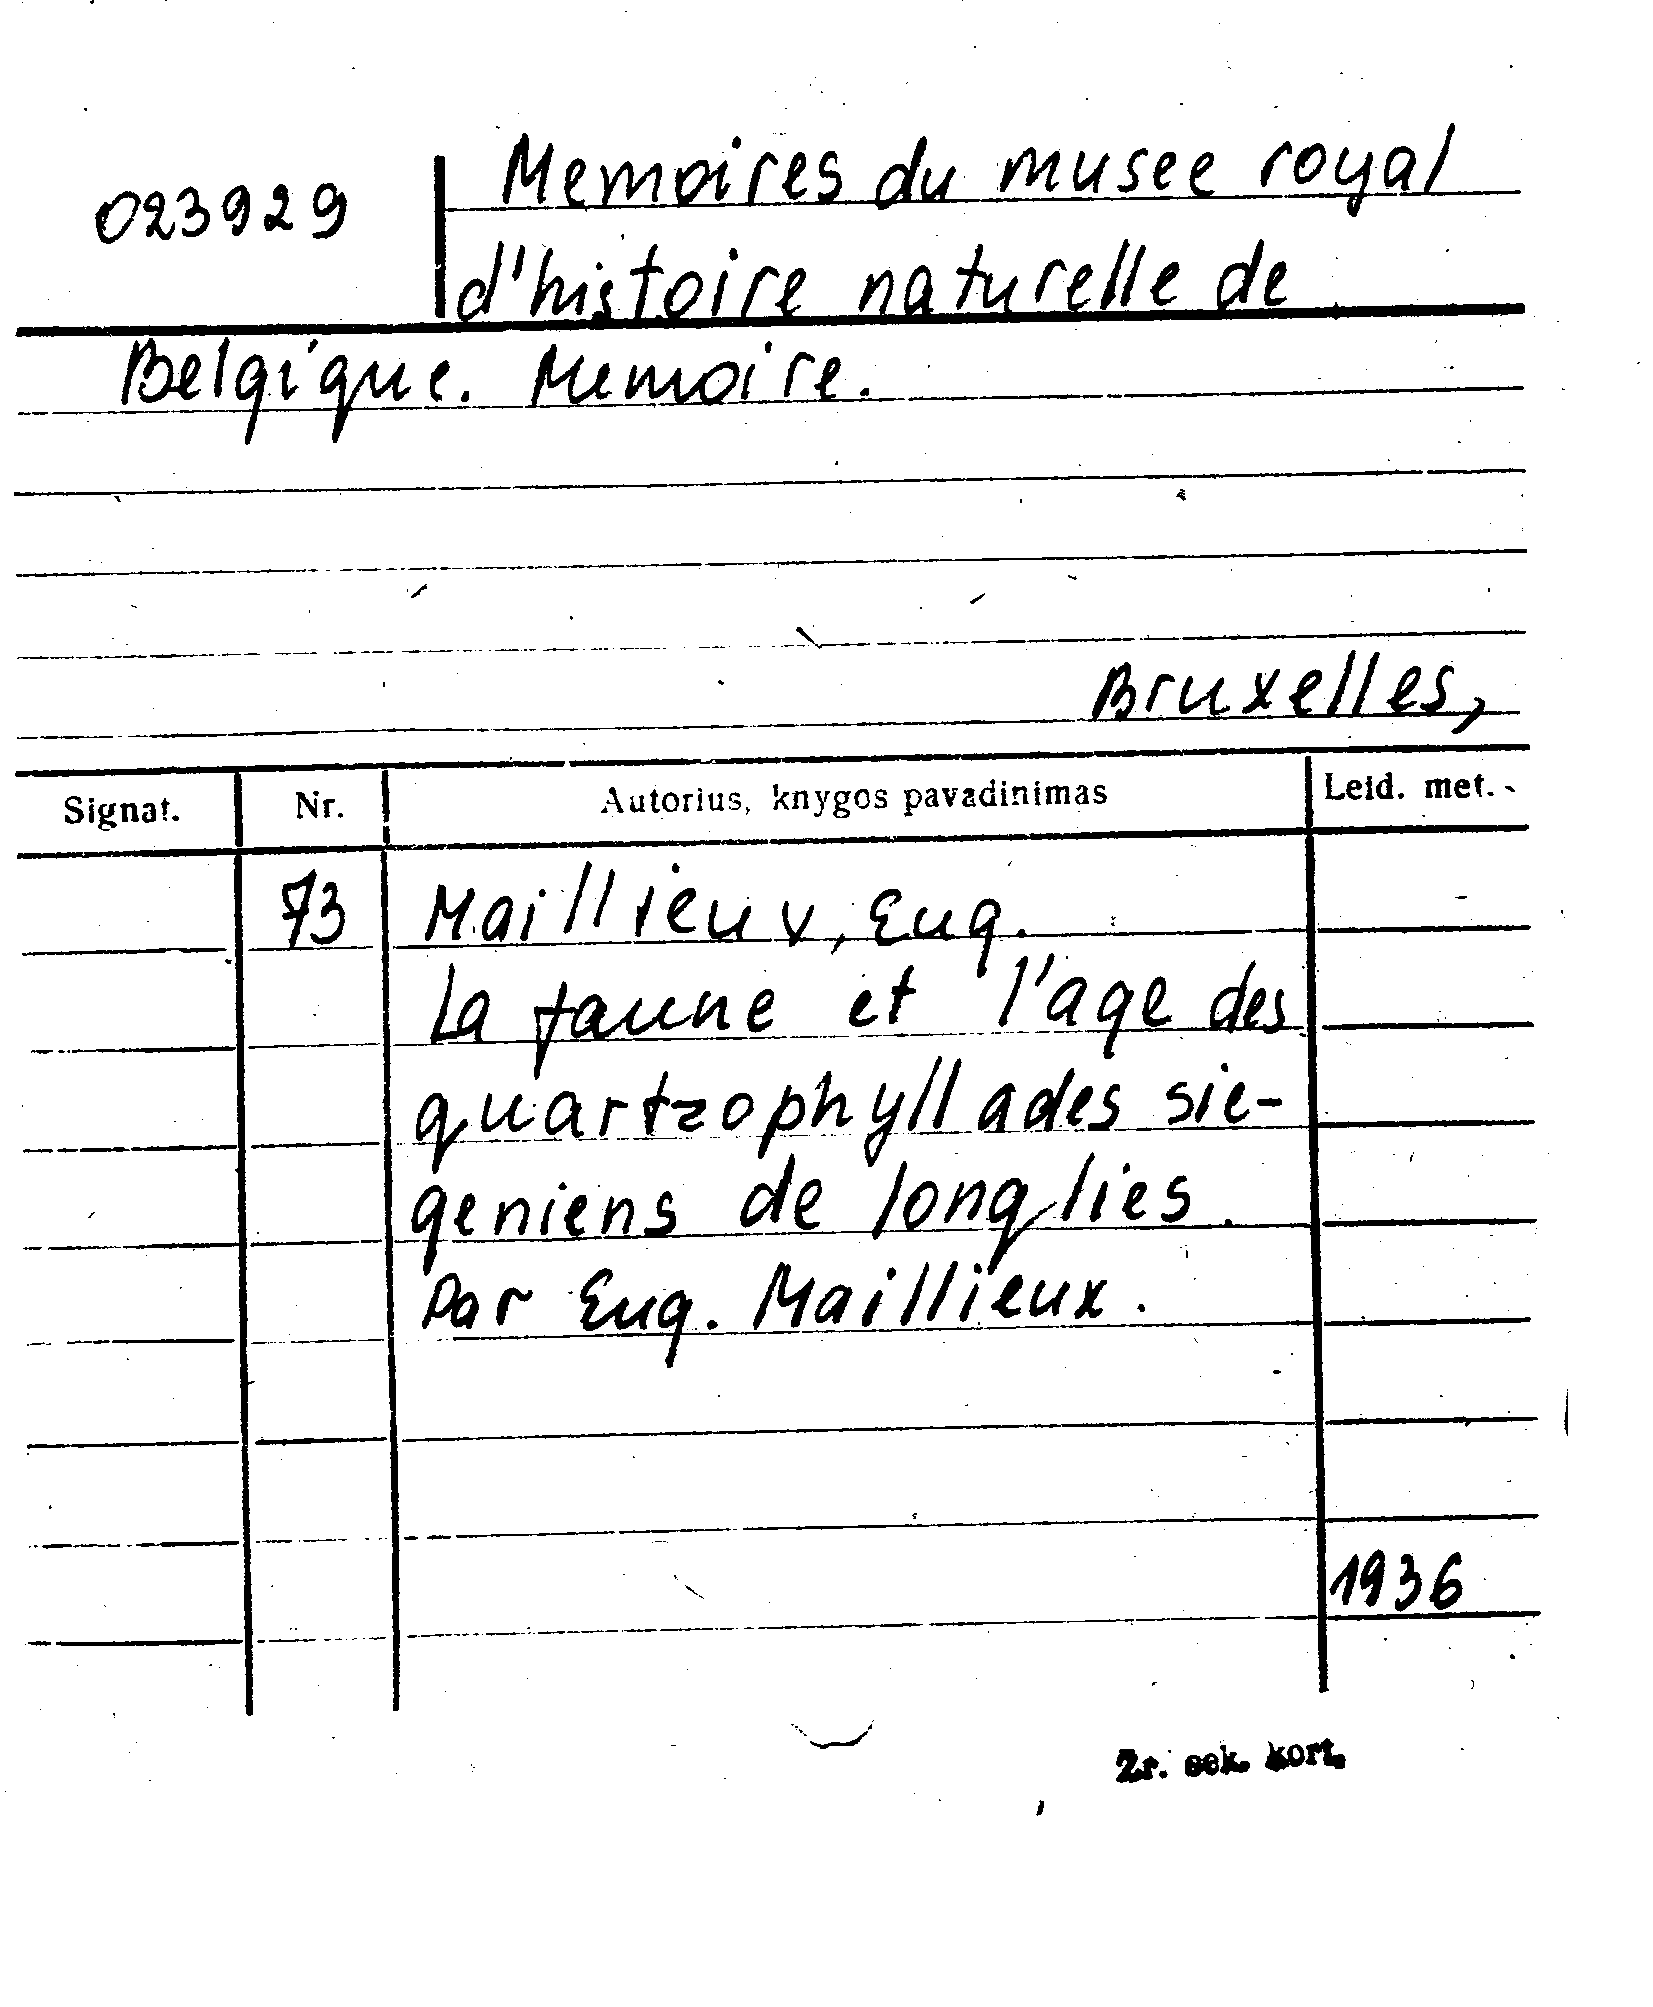 Memoires du musee royal
023929
d'histoire naturelle de
Belgique. Memoire.
Bruxelles,
Signat. Nr. Autorius, knygos pavadinimas Leid. met.
73 Maillieux, Eug.
La faune et l'age des
quartzophyllades sie-
geniens de longlies.
Par Eug. Maillieux.
1936
Žr. sek. kort.